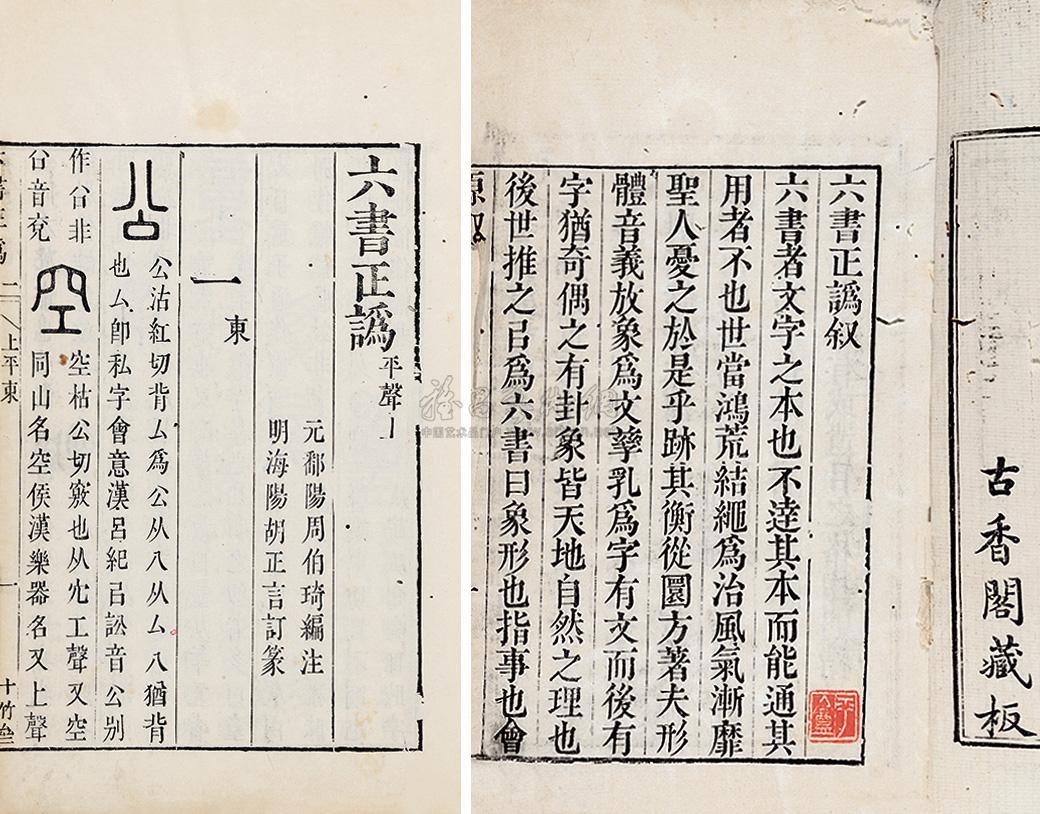 古香閣藏板
六書正譌叙
六書者文字之本也不逹其本而能通其
用者不也世當鴻荒結繩爲治風氣漸靡
聖人憂之於是乎跡其衡從圜方著夫形
體音義放象爲文孳乳爲字有文而後有
字猶奇偶之有卦象皆天地自然之理也
後世推之㠯爲六書曰象形也指事也會
原叙
六書正譌 平聲上
元鄱陽周伯琦編注
明海陽胡正言訂篆
東
一
公
公沽紅切背厶爲公从八从厶八猶背
也厶卽私字會意漢呂紀㠯訟音公别
作㕣非
㕣音兖
空
空枯公切竅也从穴工聲又空
同山名空侯漢樂器名又上聲
上平東 一 十竹